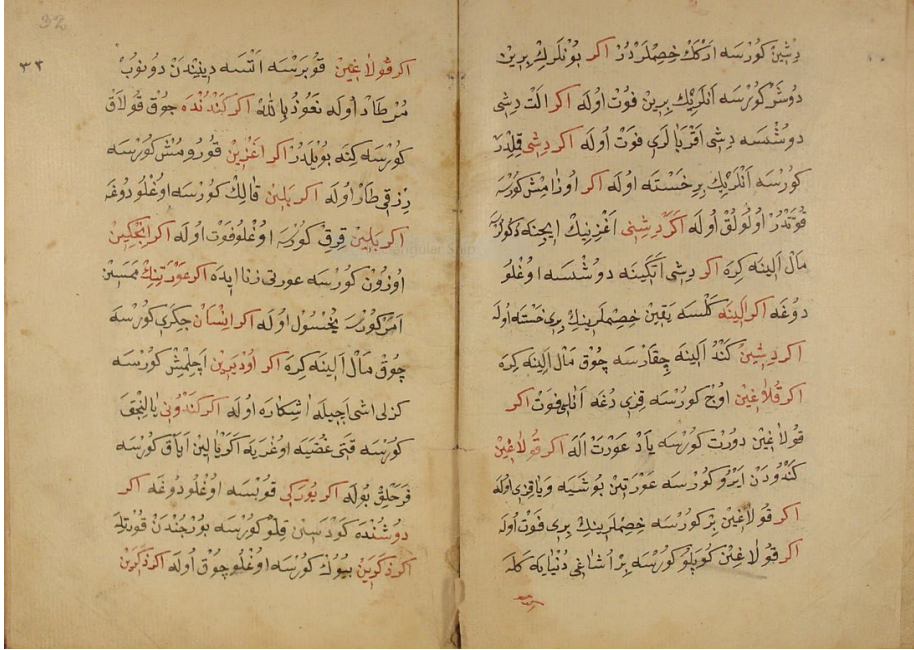 دِشِینْ كورْسَه اَرْكَكْ خِصِمْلَرْدُرْ اكر بُونْلَرِكْ بِرِینْ
دُوشَرْ كورْسَه اَنْلَرِیكْ بِرِینْ فَوْت اُولَه اكر الْت دِشِی
دوشْسَه دِشِی اَقْرَبَالَرِی فَوْت اُولَه اكر دِشِی
كورْسَه اَنْلَرِیكْ بِرِ خَسْتَه اُولَه اكر اوزَامِشْ كورْسَه
اُولُولُقْ اُولَه اكر دِشِنِی اَغْزِینِكْ اِیچِنَه
مَالْ اَلِینَه كِرَه اكر دِشِی اَتَكِینَه دوشْسَه اوغْلُو
دوغَه اكر اَلِینَه كَلْسَه یَقِینْ خِصِمْلَرِینِكْ بِرِی خَسْتَه اولَه
اكر دِشِینْ كَنْدُ اَلِینَه چِقَارْسَه چُوقْ مَالْ اَلِینَه كِرَه
اكر قُلاَغِینْ اوُچْ كورْسَه قِزِی دُغَه فَوْت اكر
قولاَغِینْ دُورْت كورْسَه یَادْ عَوْرَتْ اَلَه اكر قُولاَغِینْ
كَنْدُودَنْ اَیْرُو كورْسَه عَوْرَتِینْ بُوشَیَه وَیَا قِزِی اولَه
اكر قولاَغِینْ بِرْ كورْسَه خِصِمْلَرِینِكْ بِرِی فَوْت اُولَه
اكر قولاَغِینْ كُوپَلُو كورْسَه بِرْ اَشَاغِی دُنْیَایَه كَلَه
32
٣٢
اكر قُولاَغِینْ قوپَرْسَه اتْسَه دِینِنْدَنْ دونوُبْ
مُرْطَادْ اُولَه نَعُوذُ بِاللهْ اكر كَنْدُنْدَه چوُقْ قولاَقْ
كورْسَه كِنَه بُویْلَدُرْ اكر اَغْزِینْ قوُرومُشْ كورْسَه
رِزْقِی طَارْ اُولَه اكر بَلِینْ قَالِكْ كورْسَه اوغْلُو دوغَر
اكر بَلِینْ قِرِقْ كورْسَه اوغْلُو فَوْت اُولَه اكر
اوزُونْ كورْسَه عورتی زنا ایدَه اكر عَوْرَتِینِكْ مَمَسِینْ
اَمَرْ كورْسَه مَحْسُول اُولَه اكر اِنْسَانْ جِكَرِی كورْسَه
چُوقْ مَالْ اَلِینَه كِرَه اكر اَچِلْمِشْ كورْسَه
كزلی اشی اَجِیلَه اشكارَه اُولَه اكر كَنْدُونِی یَالِنْجَقْ
كورْسَه قَتِی غَضَبَه اوغْرَیَه اكر یَالِینْ اَیَاقْ كورْسَه
فَرَحْلِقْ بُولَه اكر یُورَكِی قوپْسَه اوغْلُو دُوغَه اكر
دُوشُنْدَه كَوْدَسِنِی قِلْلُو كورْسَه بُورْجُنْدَنْ قوُرْتِلَه
اكر ذَكَرِینْ بیُوكْ كورْسَه اوغْلُو چُوقْ اُولَه اكر ذَكَرِینْ